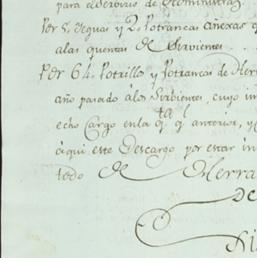 para el servicio de
Por 5. Yeguas y 2. Potrancas añexas
a las quentas de Sirvientes
Per 64. Potrillos y Potrancas de Herr
año pasado a los Sirbientes, cuyo im
echo Cargo en la q.ta q.l anterior, y
aqui este Descargo por estar in
todo de Herra
De